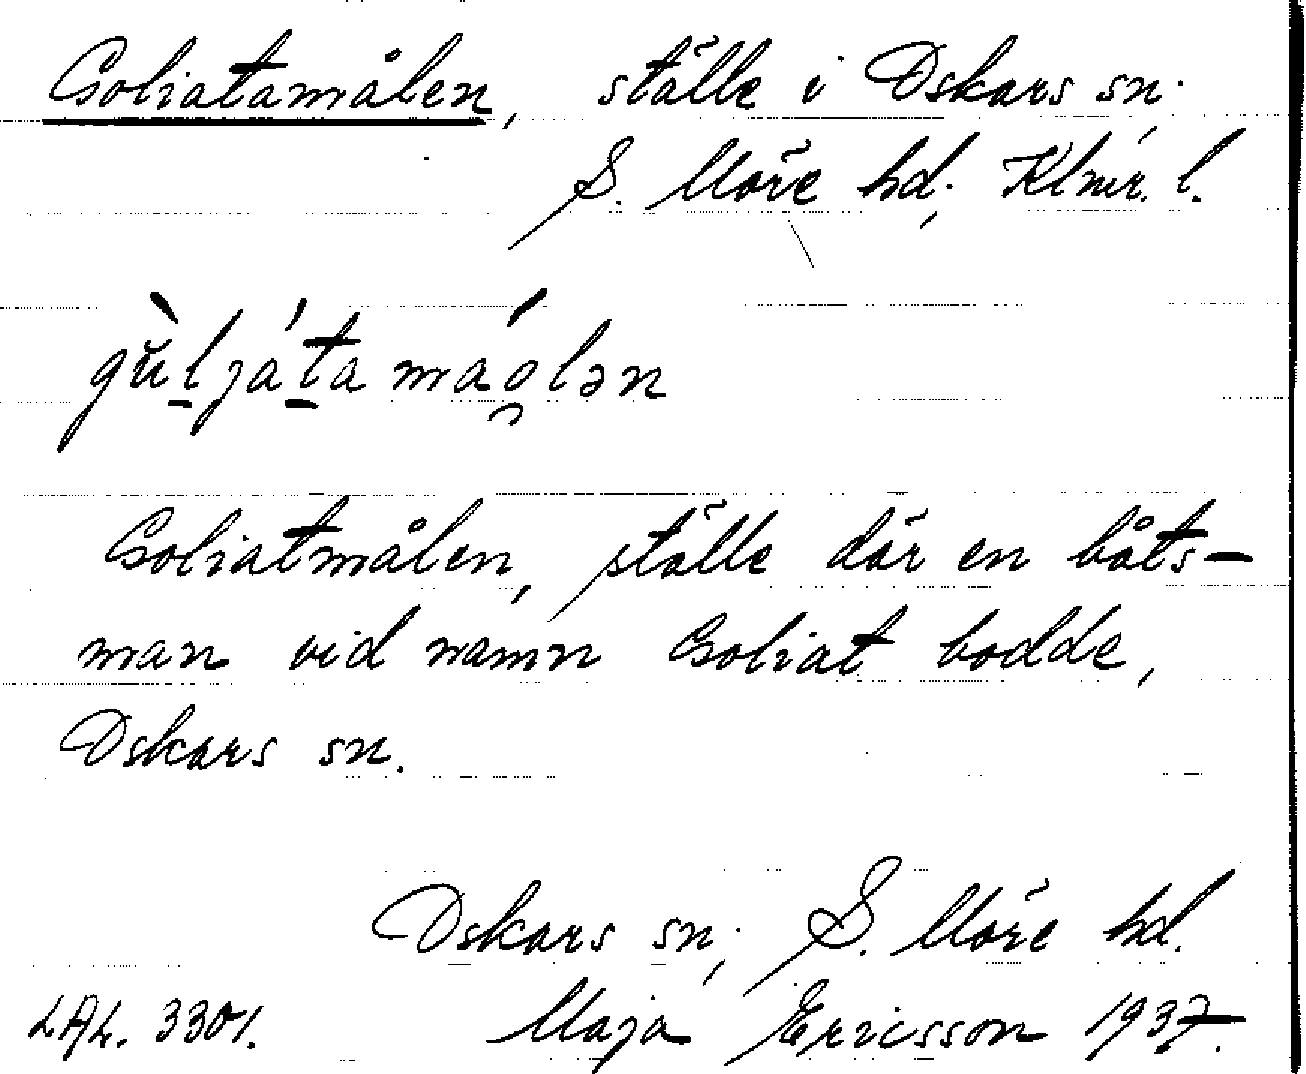 Goliatamålen, ställe i Oskars sn.
S. Möre hd, Klmr. l.
gù̆ljáta máo̯lən
Goliatmålen, ställe där en båts-
man vid namn Goliat bodde,
Oskars sn.
Oskars sn, S. Möre hd.
LAL. 3301. Maja Ericsson 1937.